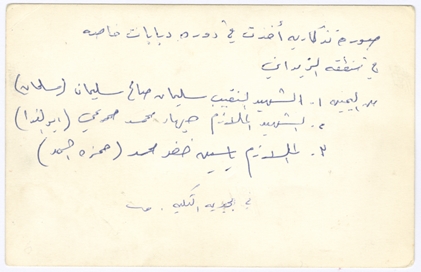 صورة تذكارية أخذت في دورة دبابات خاصه
في منطقة الزيداني
من اليمين ١. الشهيد النقيب سليمان صالح سليمان (سلمان)
٢. الشهيد الملازم محمد (ابو الفدا)
٣. الملازم ياسين خضر محمد (حمزه احمد)
في